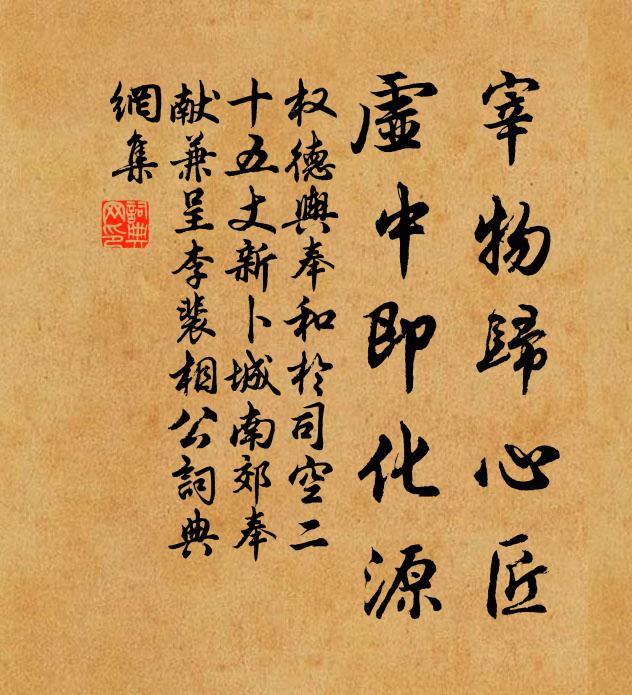 宰物歸心匠
虛中即化源
权德輿奉和於司空二
十五丈新卜城南郊奉
献兼呈李裴相公詞典
網集
詞典
网印